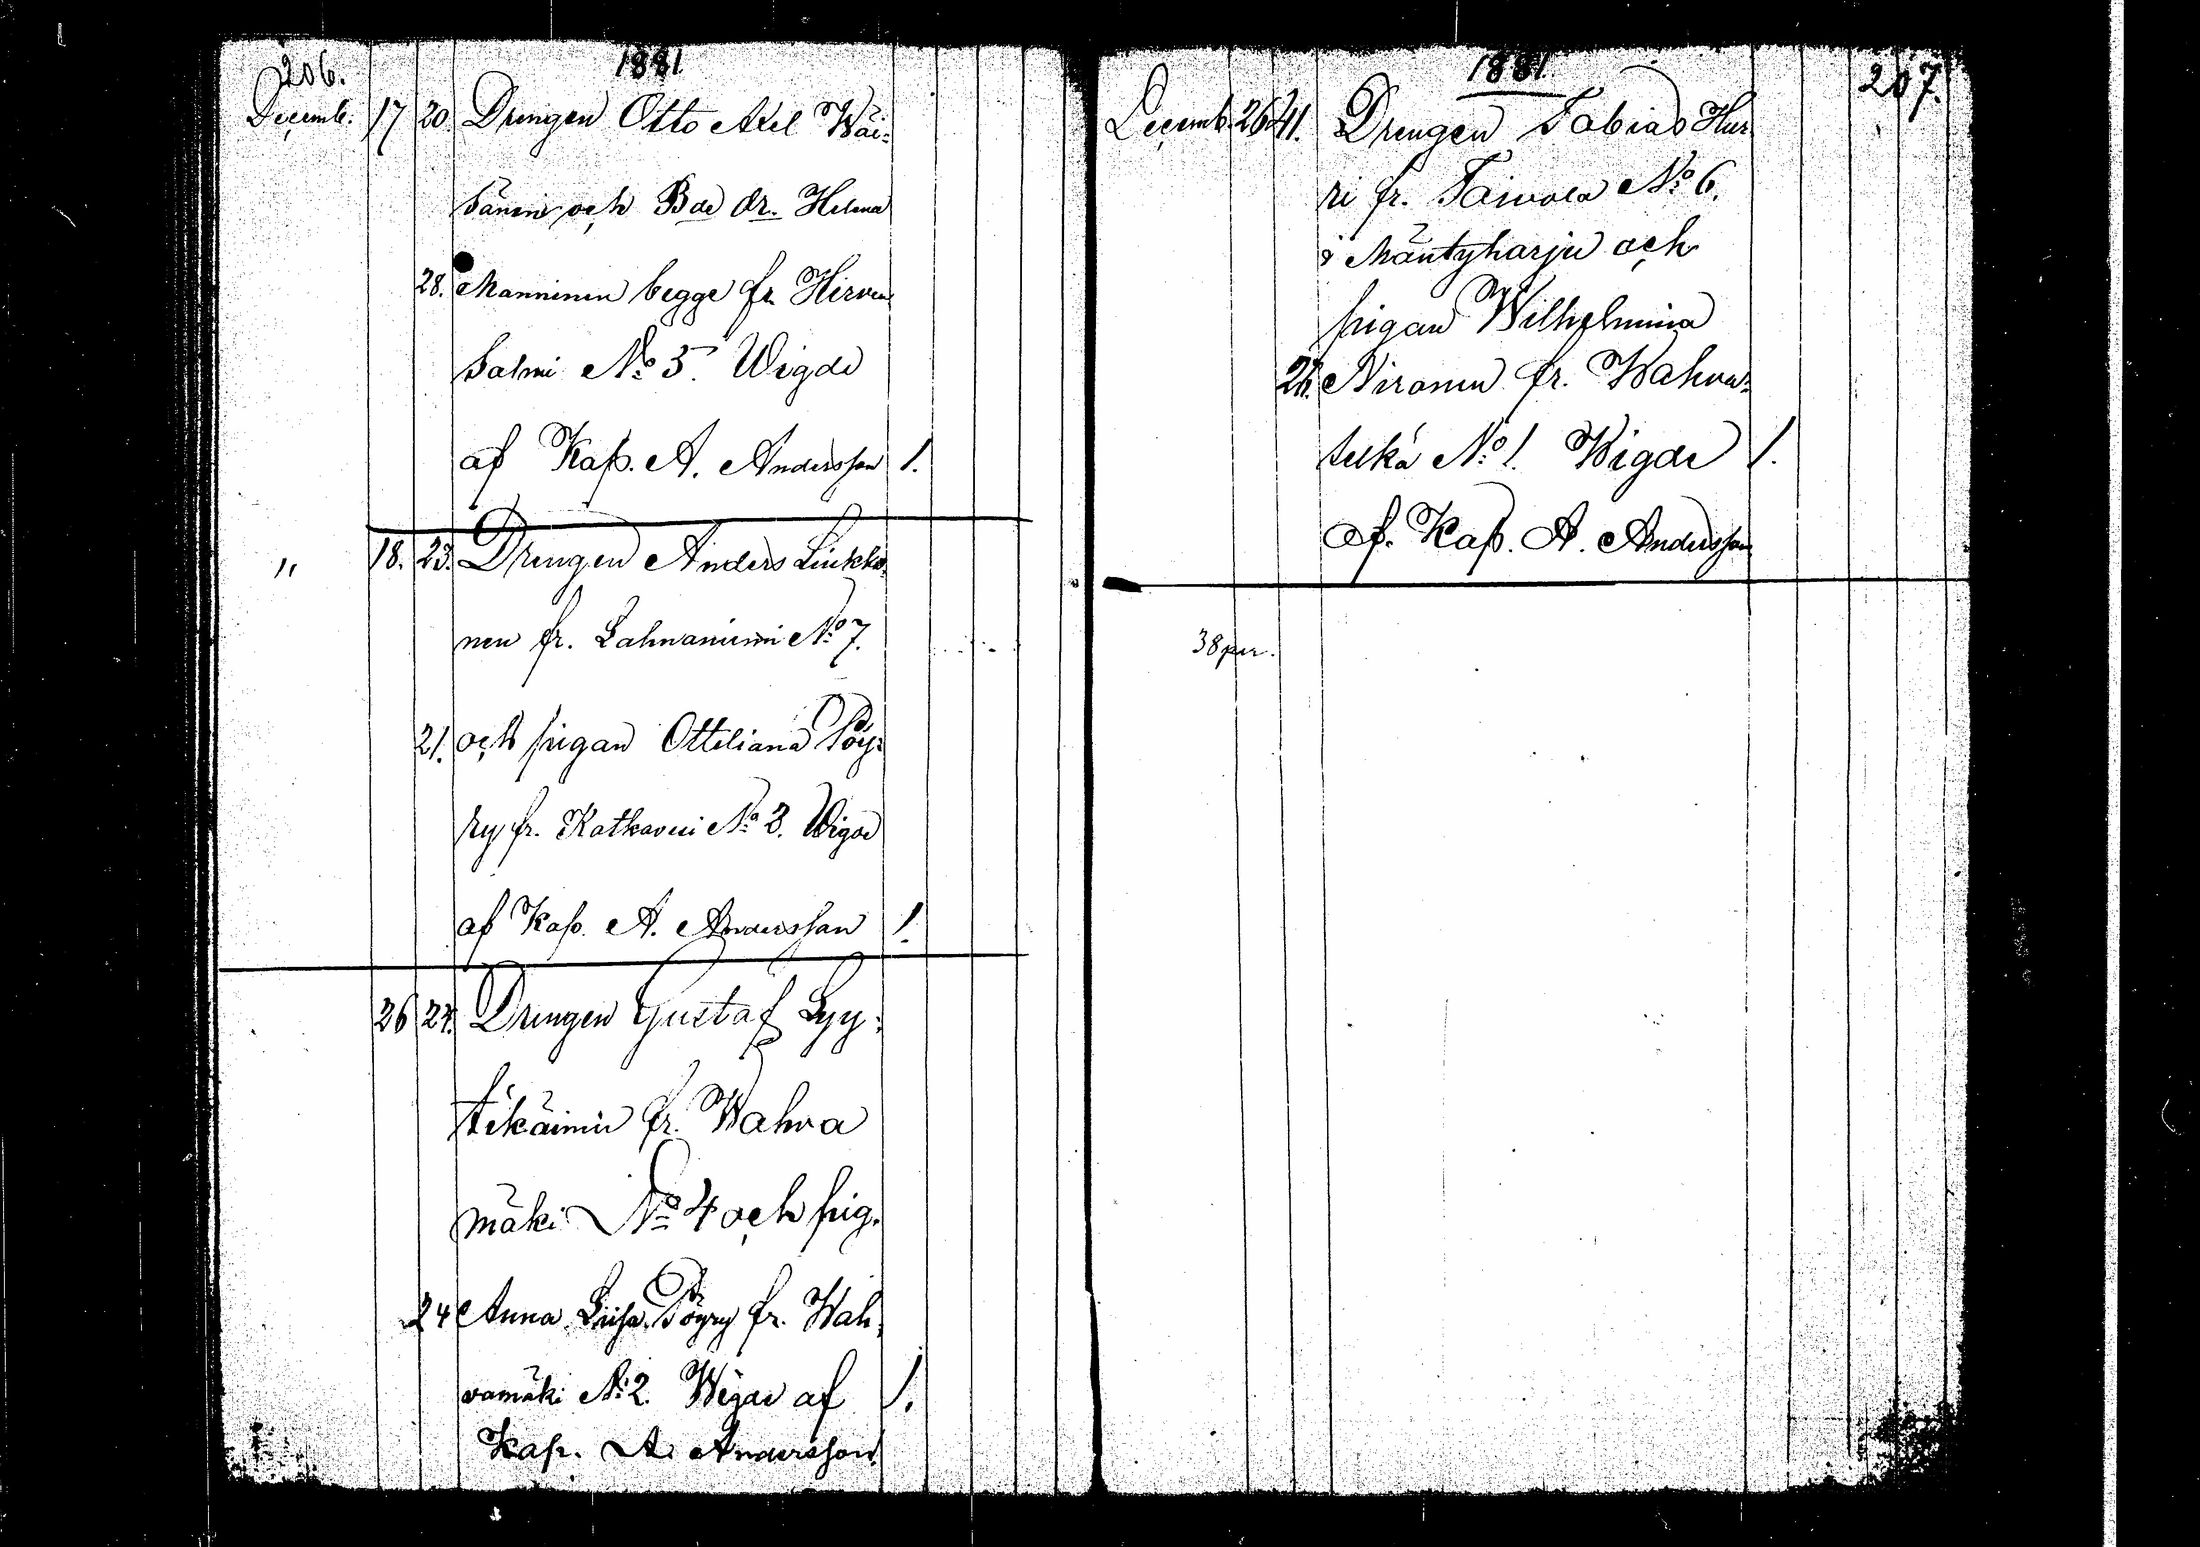 206.
1881
Decemb. 17 20. Drengen Otto Axel Wäi-
sänen och Bde dr. Helena
28. Manninen begge fr. Hirven
salmi No 5. Wigde
af Kap. A. Andersson 1.
" 18. 23. Drengen Anders Linkko-
nen fr. Lahnaniemi No 7.
21. och pigan Ottiliana Pöy-
ry fr. Katkavesi No 3. Wigde
af Kap. A. Andersson 1.
26 27. Drengen Gustaf Lyy-
tikäinen fr. Wahva
mäki No 4 och pig.
24 Anna Liisa Pöyry fr. Wah-
vamäki No 2. Wigde af 1.
Kap. A. Andersson
1881.
207.
Decemb. 26 41. Drengen Tobias Hur
ri fr. Taivola No 6.
i Mäntyharju och
pigan Wilhelmina
Nironen fr. Wahva-
No 1. Wigde 1.
af. Kap. A. Andersson
38 par.